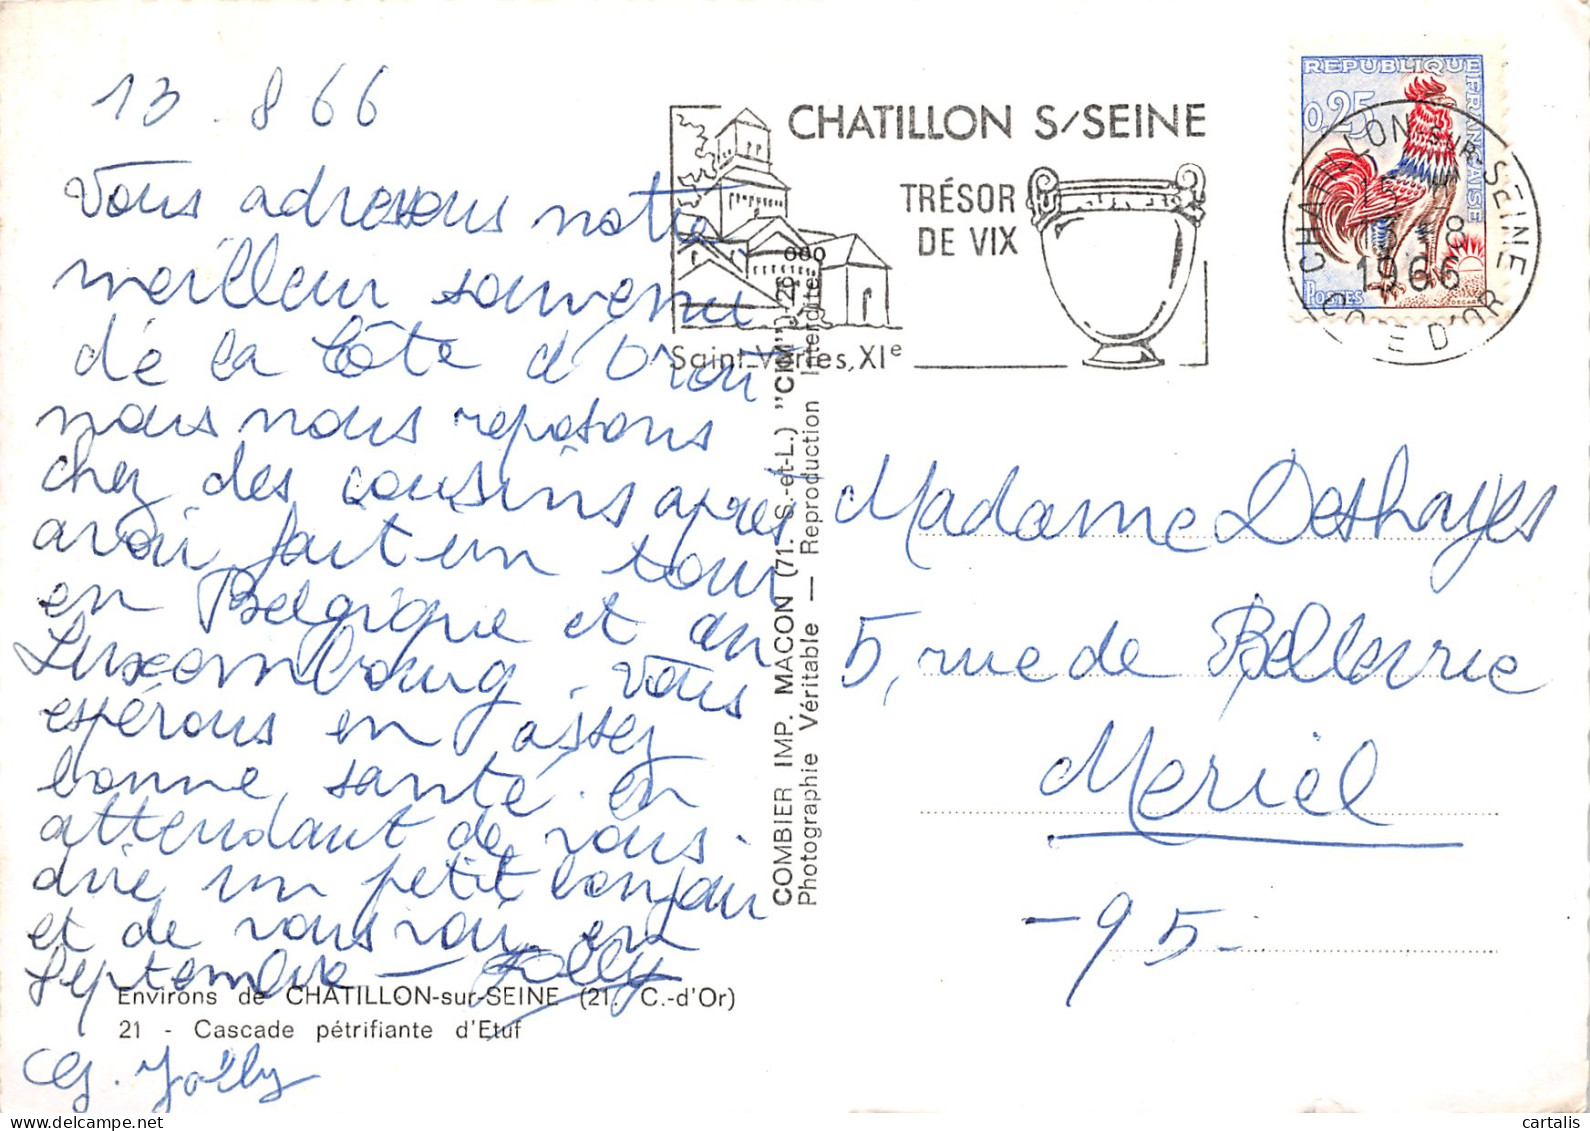 13. 8 66
Vous adressons notre
meilleur souvenu
de la Côte d'Or où
nous nous reposons
chez des cousins après
avoir fait un tour
en Belgique et au
Luxembourg. Vous
espérons en assez
bonne santé. en
attendant de vous
dire un petit bonjour
et de vous voir en
Septembre — Joëlly
Environs de CHATILLON-sur-SEINE (21. C.-d'Or)
21 - Cascade pétrifiante d'Etuf
Joëlly
COMBIER IMP. MACON (71. S.-et-L.) "CIM"
Photographie Véritable — Reproduction Interdite
CHATILLON S/SEINE
TRÉSOR
DE VIX
Saint-Vorles, XIe
REPUBLIQUE FRANÇAISE
0,25
POSTES
CHATILLON-SUR-SEINE
13-8
1966
COTE D'OR
Madame Deshayes
5, rue de Bellevue
Meriel
- 95 -
cartalis